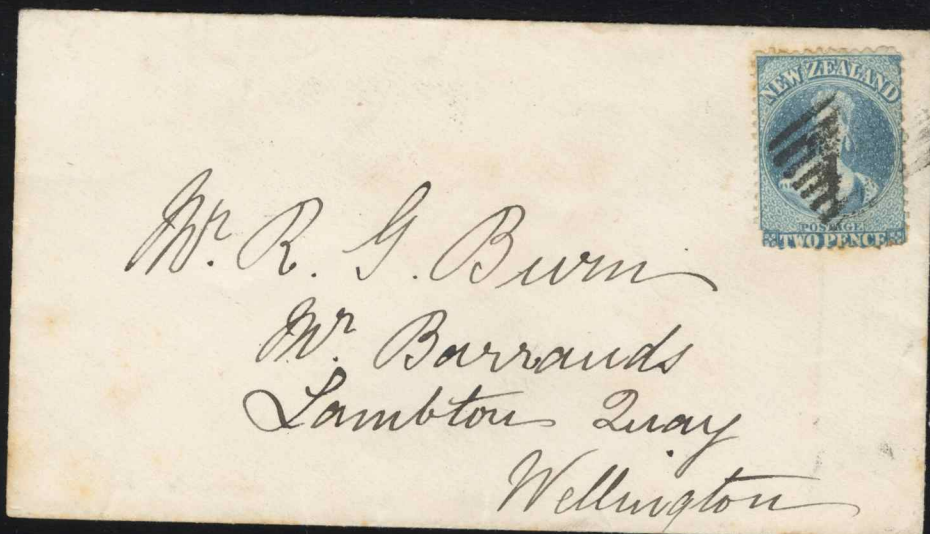 NEW ZEALAND
POSTAGE
TWO PENCE
Mr. R. G. Burn
Mr. Barrauds
Lambton Quay
Wellington